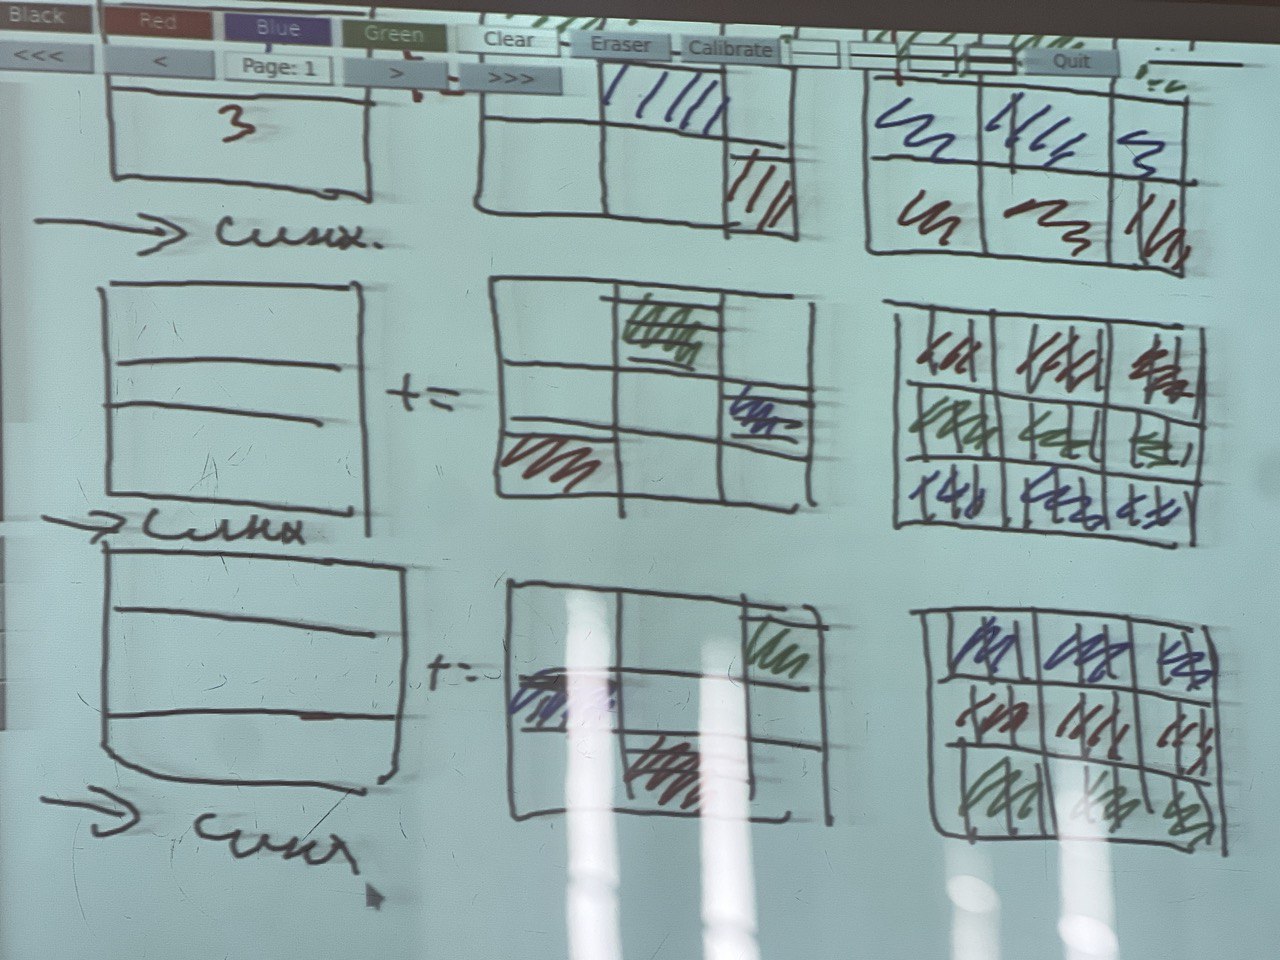 Black Red Blue Green Clear Eraser Calibrate Quit
<<< < Page: 1 > >>>
3
→ синх.
+=
→ синх
+=
→ синх